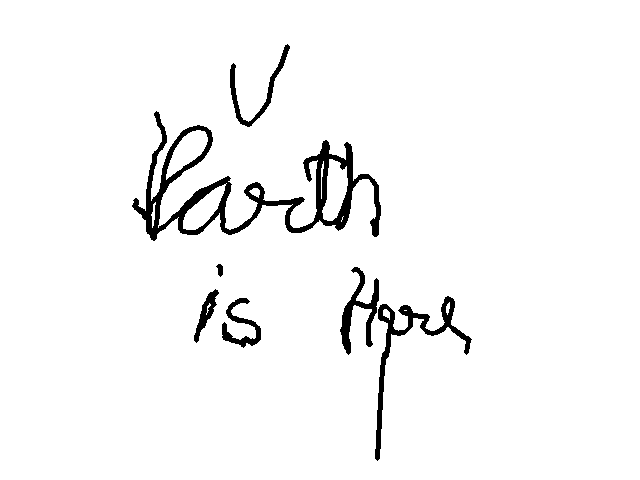 V
Parth
is Here